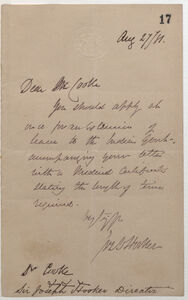 17
Aug 27/81.
Dear Mr Cooke
You should apply at
once for an Extension of
leave to the Indian Govt.
accompanying your letter
with a Medical Certificate
stating the length of time
required.
Jos D Hooker
Dr Cooke
Sir Joseph Hooker Director